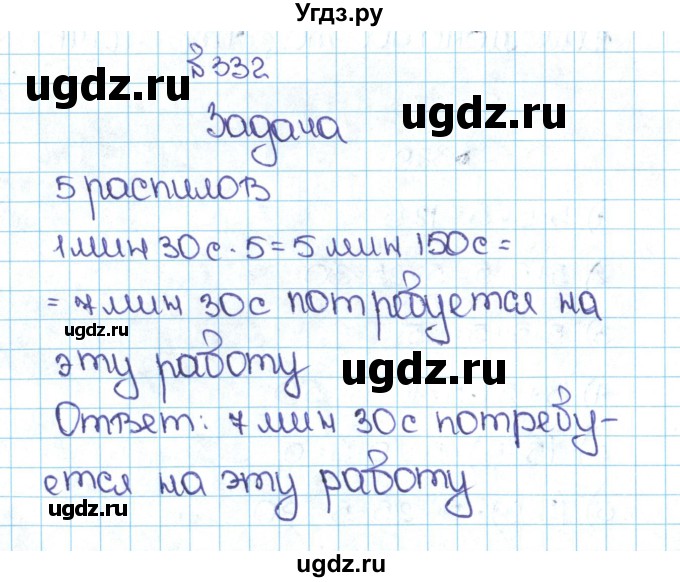 Угдз.ру
№332
ugdz.ru
ugdz.ru
Задача
5 распилов
1 мин 30 с · 5 = 5 мин 150 с =
= 7 мин 30 с потребуется на
ugdz.ru
эту работу
ugdz.ru
Ответ: 7 мин 30 с потребу-
ется на эту работу
ugdz.ru
ugdz.ru
Угдз.ру